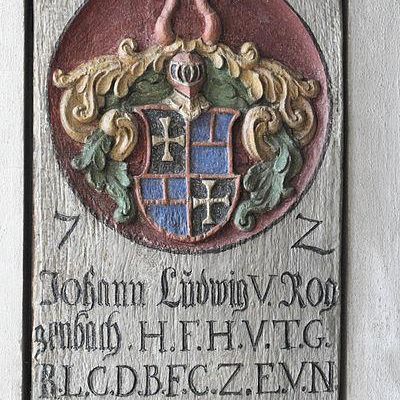 7 2
Johann Ludwig V. Rog
genbach. H.F.H.V.T.G.
R.L.C.D.B.F.C.Z.E.V.N.